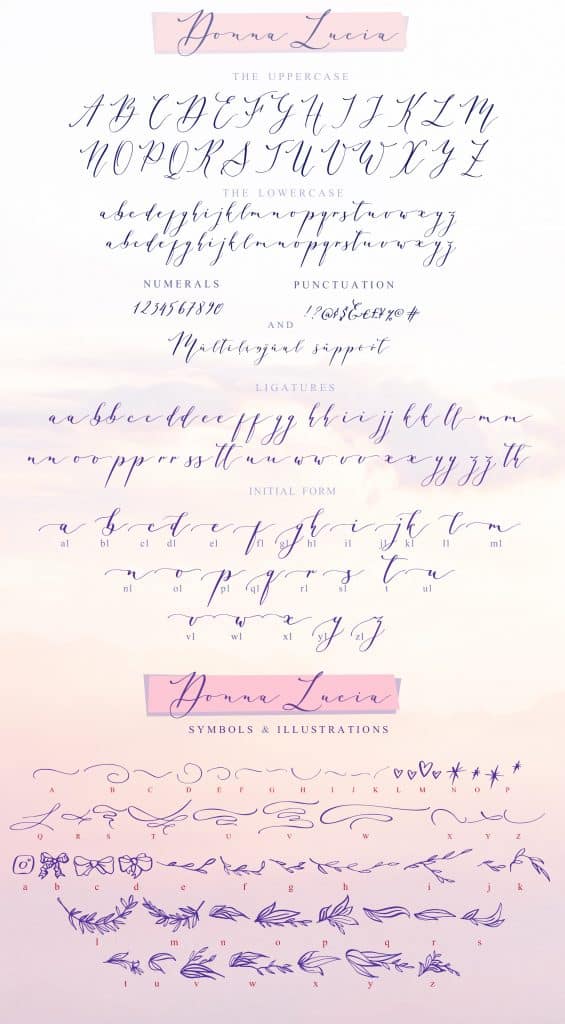 Donna Lucia
THE UPPERCASE
A B C D E F G H I J K L M
N O P Q R S T U V W X Y Z
THE LOWERCASE
a b c d e f g h i j k l m n o p q r s t u v w x y z
a b c d e f g h i j k l m n o p q r s t u v w x y z
NUMERALS PUNCTUATION
1 2 3 4 5 6 7 8 9 0
AND
support
LIGATURES
aa bb cc dd ee ff gg hh ii jj kk ll mm
nn oo pp rr ss tt uu ww vv xx yy zz th
INITIAL FORM
a b c d e f g h i j k l m
a1 b1 c1 d1 e1 f1 g1 h1 i1 j1 k1 l1 m1
n o p q r s t u
n1 o1 p1 q1 r1 s1 t u1
v w x y z
v1 w1 x1 y1 z1
Donna Lucia
SYMBOLS & ILLUSTRATIONS
A B C D E F G H I J K L M N O P
Q R S T U V W X Y Z
a b c d e f g h i j k
l m n o p q r s
t u v w x y z